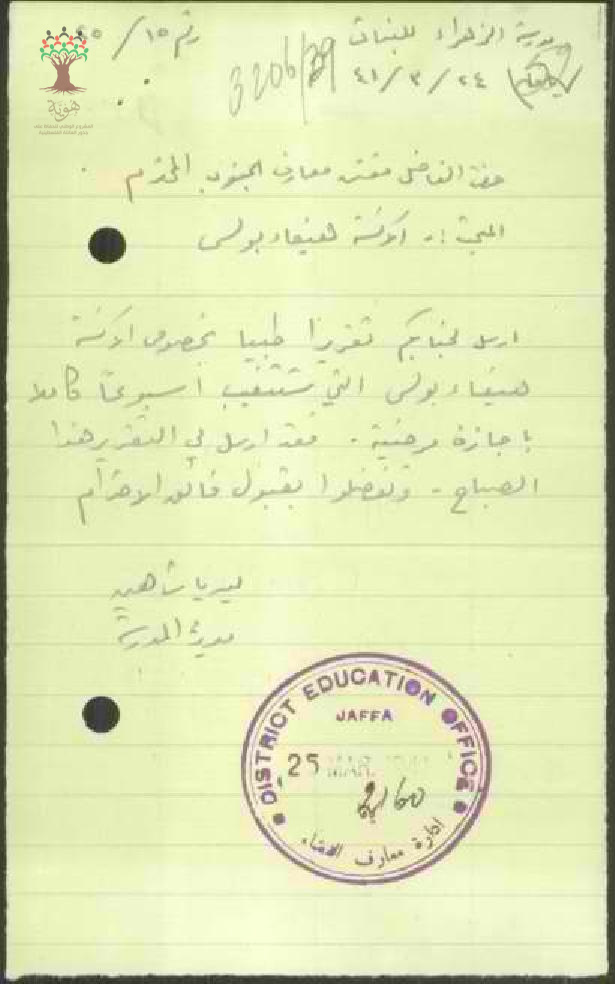 مدرسة الزهراء للبنات
رقم ١٥ /
يافا
٢٤ / ٣ / ٤١
3206/39
هوية
حضرة الفاضل مفتش معارف الجنوب المحترم
المبحث :- الآنسة هيفاء بولس
ارسل لجنابكم تقريرا طبيا بخصوص الآنسة
هيفاء بولس التي ستتغيب اسبوعاً كاملا
باجازة مرضية . فقد ارسل لي التقرير هذا
الصباح - وتفضلوا بقبول فائق الاحترام
شاهين
مديرة المدرسة
DISTRICT EDUCATION OFFICE
JAFFA
25 MAR.
2/60
ادارة معارف اللواء